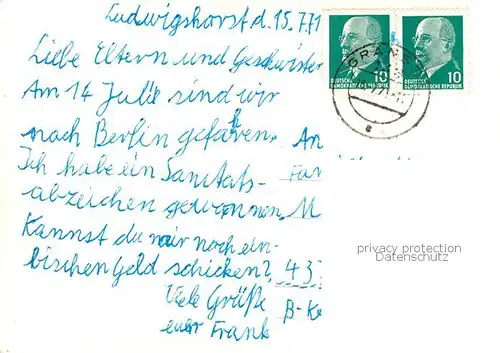 Ludwigshorst d. 15.7.71
Liebe Eltern und Geschwister
Am 14 Julie sind wir
nach Berlin gefahren.
Ich habe ein Sanitäts-
abzeichen gewonnen.
Kannst du mir noch ein
bischen Geld schicken?
Viele Grüße
euer Frank
An
Fam
M
43
B-Ke
DEUTSCHE
DEMOKRATISCHE REPUBLIK
10
DEUTSCHE
DEMOKRATISCHE REPUBLIK
10
privacy protection
Datenschutz